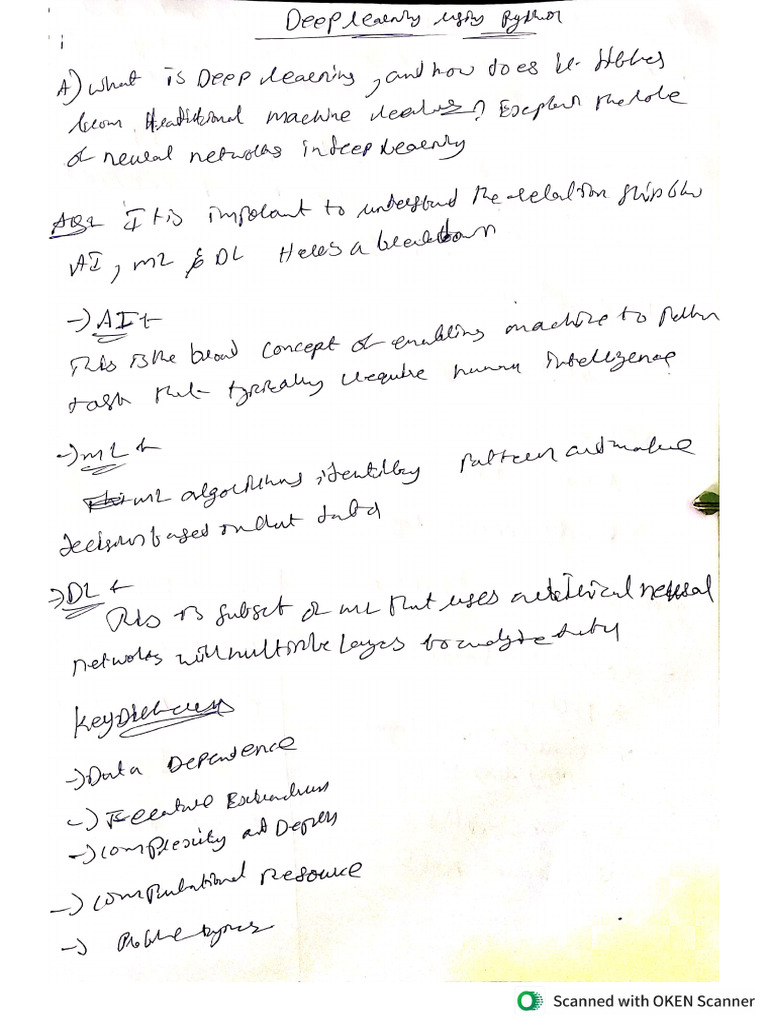 Deep learning using Python
A) what is Deep learning, and how does it
from traditional machine learning? Explain the role
of neural networks in deep learning
It is important to understand the relation ship b/w
AI, ML & DL Here's a breakdown
→) AI
This is the broad concept of enabling machine to
task that typically require human intelligence
→) ML
ML algorithms, identify pattern and make
decisions based on that data
→) DL
This is subset of ML that uses artificial neural
networks with multiple layers to analyze data
Key Differences
→) Data Dependence
→) Feature Extraction
→) Complexity and
→) Computational Resource
→) types
Scanned with OKEN Scanner